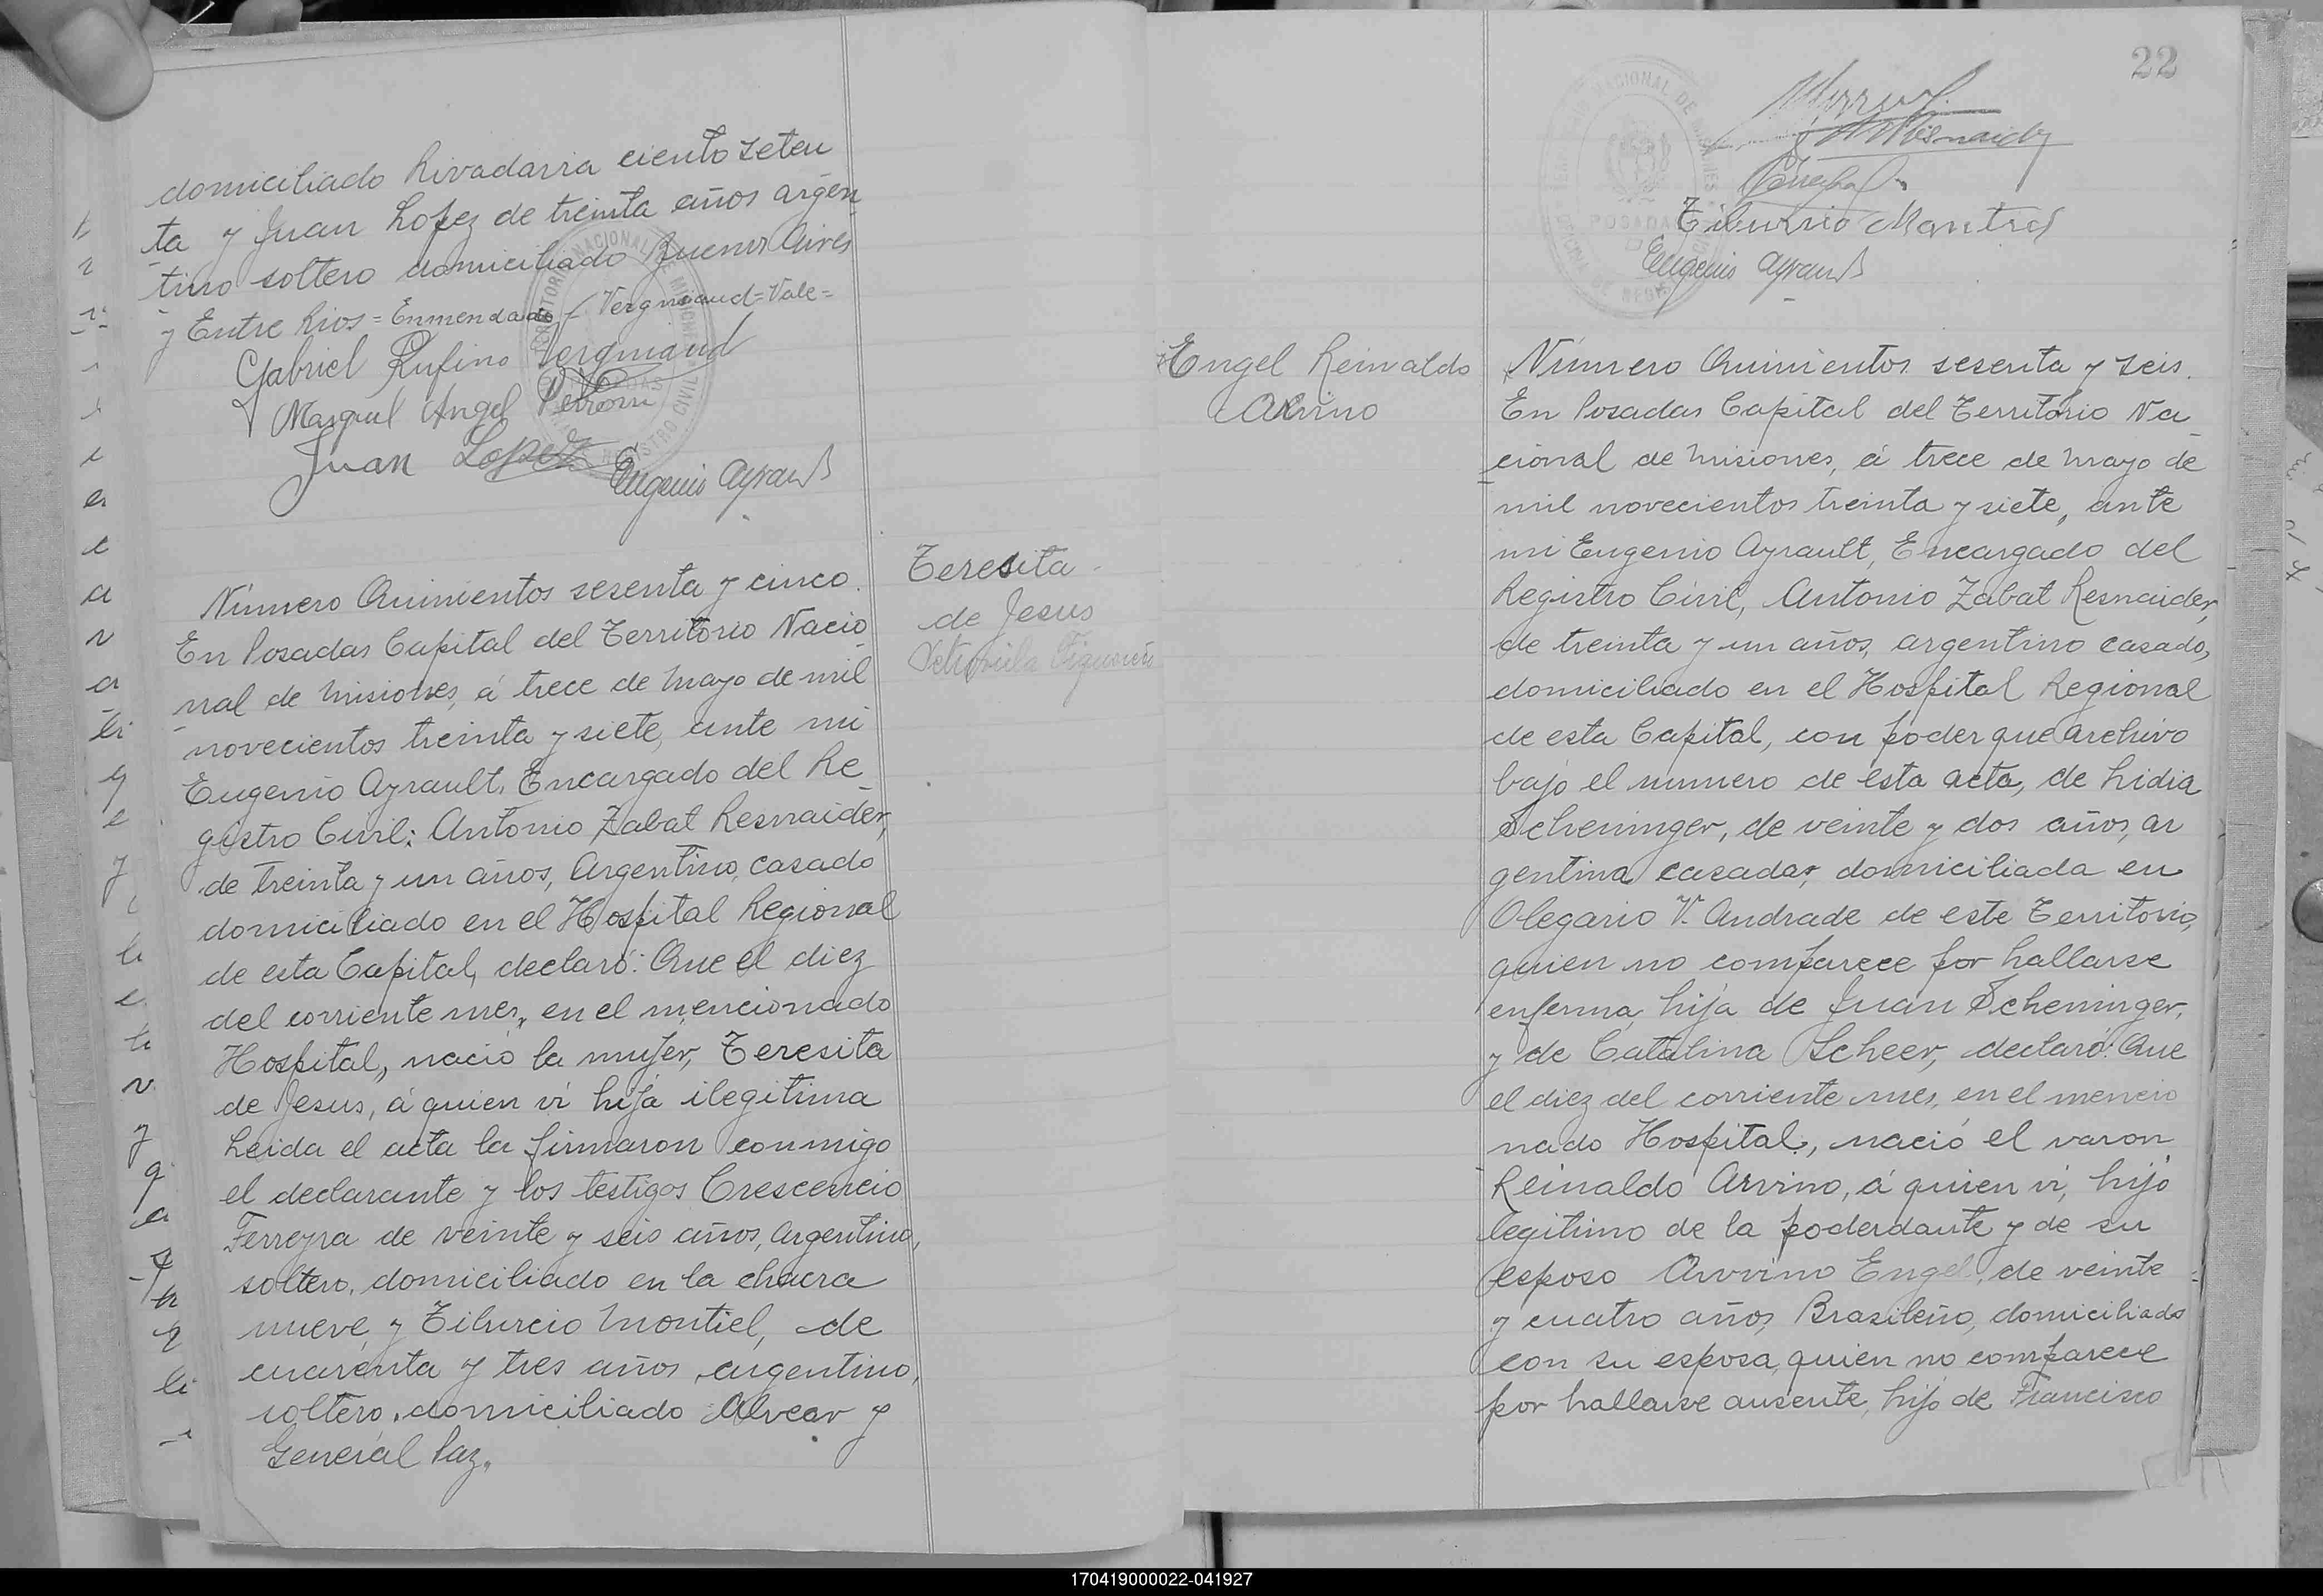 domiciliado Rivadavia ciento seten
ta y Juan Lopez de treinta años argen
tino soltero domiciliado Buenos Aires
y Entre Rios = Enmendado = Vergniaud = Vale =
Gabriel Rufino Vergniaud
Miguel Angel
Juan Lopez
Eugenio Ayrault
Número Quinientos sesenta y cinco.
En Posadas Capital del Territorio Nacio
nal de Misiones, á trece de Mayo de mil
novecientos treinta y siete, ante mi
Eugenio Ayrault, Encargado del Re
gistro Civil: Antonio Zabat Resnaider,
de treinta y un años, Argentino, casado
domiciliado en el Hospital Regional
de esta Capital, declaró: Que el diez
del corriente mes, en el mencionado
Hospital, nació la mujer, Teresita
de Jesus, á quien ví hija ilegitima
Leida el acta la firmaron conmigo
el declarante y los testigos Crescencio
Ferreyra de veinte y seis años, argentino,
soltero, domiciliado en la chacra
nueve, y Tiburcio Montiel, de
cuarenta y tres años, argentino,
soltero, domiciliado Alvear y
General Paz.
Teresita
de Jesus
22
POSADAS
Eugenio Ayrault
Engel Reinaldo
Arvino
Número Quinientos sesenta y seis.
En Posadas Capital del Territorio Na
cional de Misiones, á trece de Mayo de
mil novecientos treinta y siete, ante
mi Eugenio Ayrault, Encargado del
Registro Civil, Antonio Zabat Resnaider,
de treinta y un años, argentino casado,
domiciliado en el Hospital Regional
de esta Capital, con poder que archivo
bajo el numero de esta acta, de Lidia
Scheninger, de veinte y dos años, ar
gentina casada, domiciliada en
Olegario V. Andrade de este Territorio,
quien no comparece por hallarse
enferma, hija de Juan Scheninger,
y de Catalina Scheer, declaró: Que
el diez del corriente mes, en el mencio
nado Hospital, nació el varon
Reinaldo Arvino, á quien ví, hijo
legitimo de la poderdante y de su
esposo Arvino Engel, de veinte
y cuatro años, Brasileño, domiciliado
con su esposa, quien no comparece
por hallarse ausente, hijo de Francisco
170419000022-041927